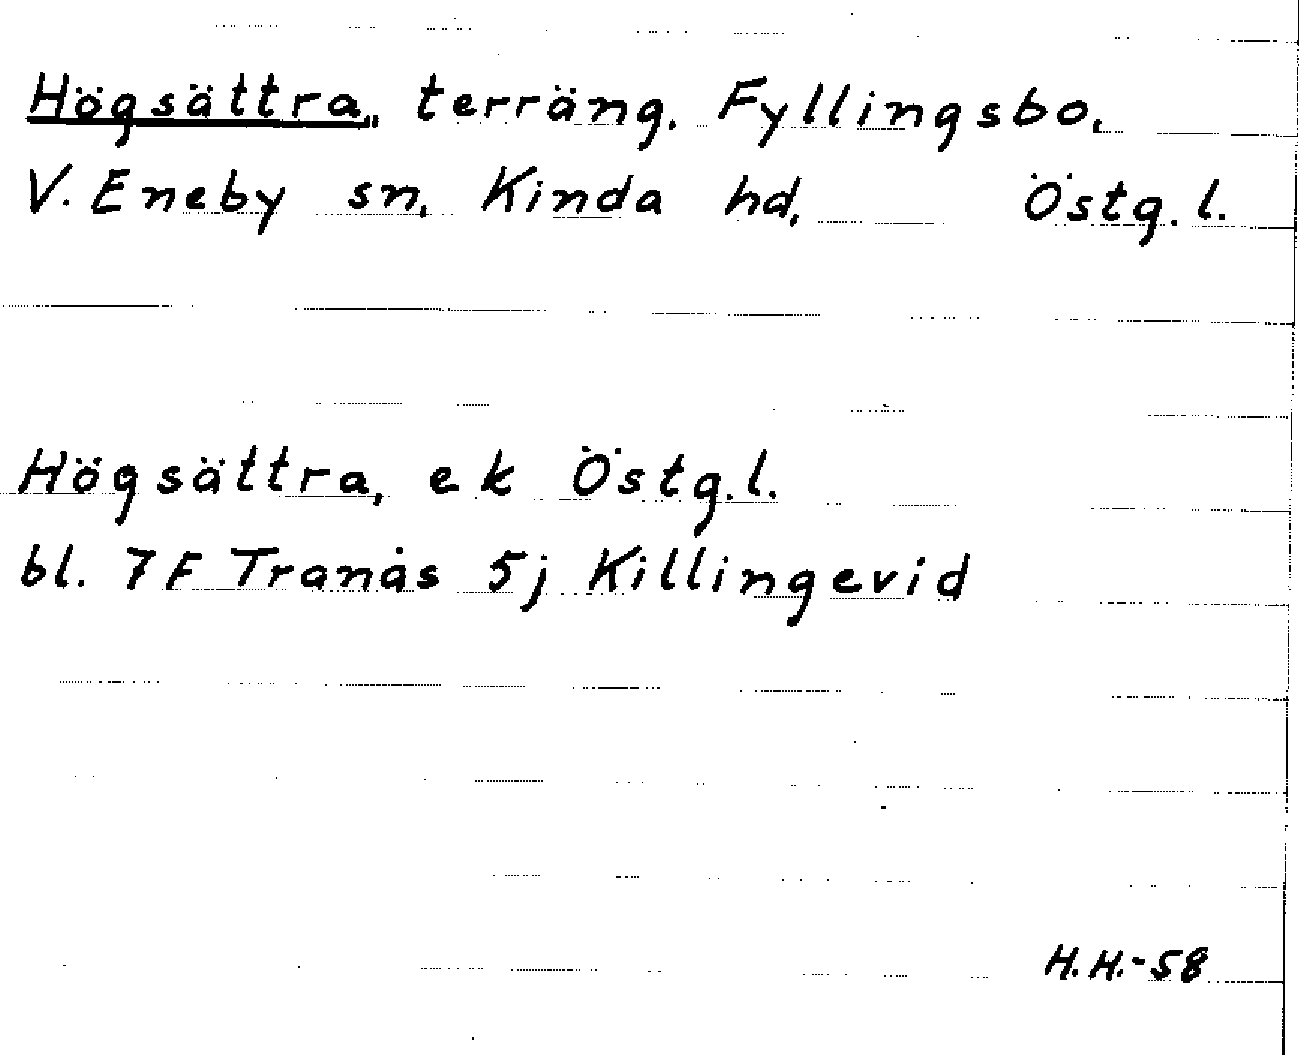 Högsättra, terräng. Fyllingsbo,
V. Eneby sn, Kinda hd, Östg. l.
Högsättra, ek Östg. l.
bl. 7F Tranås 5j Killingevid
H.H.-58